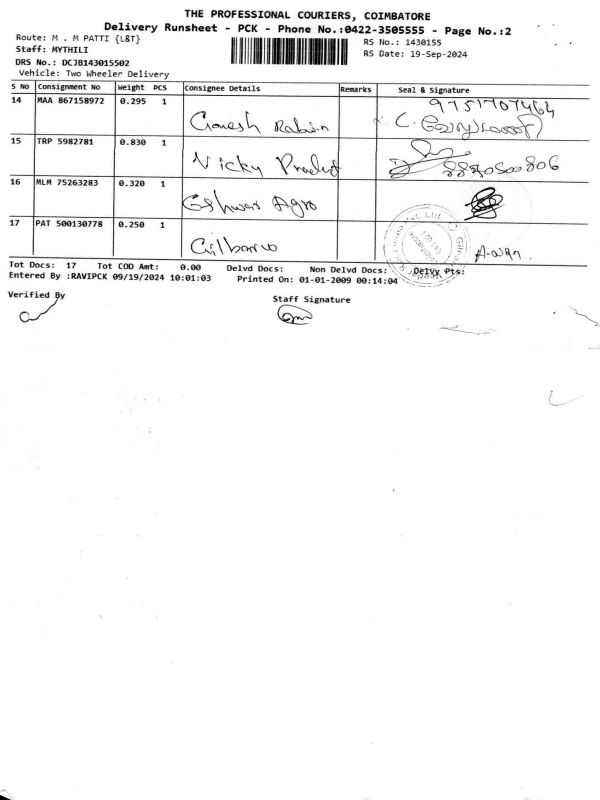 THE PROFESSIONAL COURIERS, COIMBATORE
Delivery Runsheet - PCK - Phone No.:0422-3505555 - Page No.:2
Route: M . M PATTI {L&T}
RS No.: 1430155
Staff: MYTHILI
RS Date: 19-Sep-2024
DRS No.: DCJB143015502
Vehicle: Two Wheeler Delivery
S No Consignment No Weight PCS Consignee Details Remarks Seal & Signature
14 MAA 867158972 0.295 1 Ganesh 9751707464
15 TRP 5982781 0.830 1 Vicky
16 MLM 75263283 0.320 1 Eshwar Agro
17 PAT 500130778 0.250 1 Gilbarco
Tot Docs: 17 Tot COD Amt: 0.00 Delvd Docs: Non Delvd Docs: Delvy Pts:
Entered By :RAVIPCK 09/19/2024 10:01:03 Printed On: 01-01-2009 00:14:04
Verified By
Staff Signature